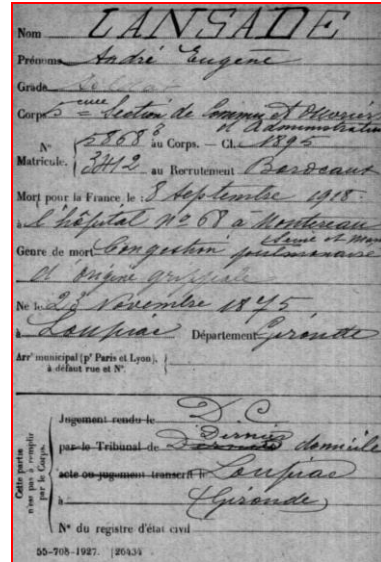 Nom LANSADE
Prénoms André Eugène
Grade
Corps 5ème Section de Commis et Ouvriers
d'administration
N° 5868 au Corps. — Cl. 1895
Matricule. 3412 au Recrutement Bordeaux
Mort pour la France le 8 Septembre 1918
à l'hôpital n° 68 à Montereau
(Seine et Marne
Genre de mort Congestion pulmonaire
d'origine grippale
Né le 23 Novembre 1875
à Loupiac Département Gironde
Arrt municipal (pr Paris et Lyon),
à défaut rue et N°.
Cette partie
n'est pas à remplir
par le Corps.
Jugement rendu le D C
Dernier
par le Tribunal de domicile
acte ou jugement transcrit le Loupiac
à (Gironde)
N° du registre d'état civil
55-708-1927. [26434